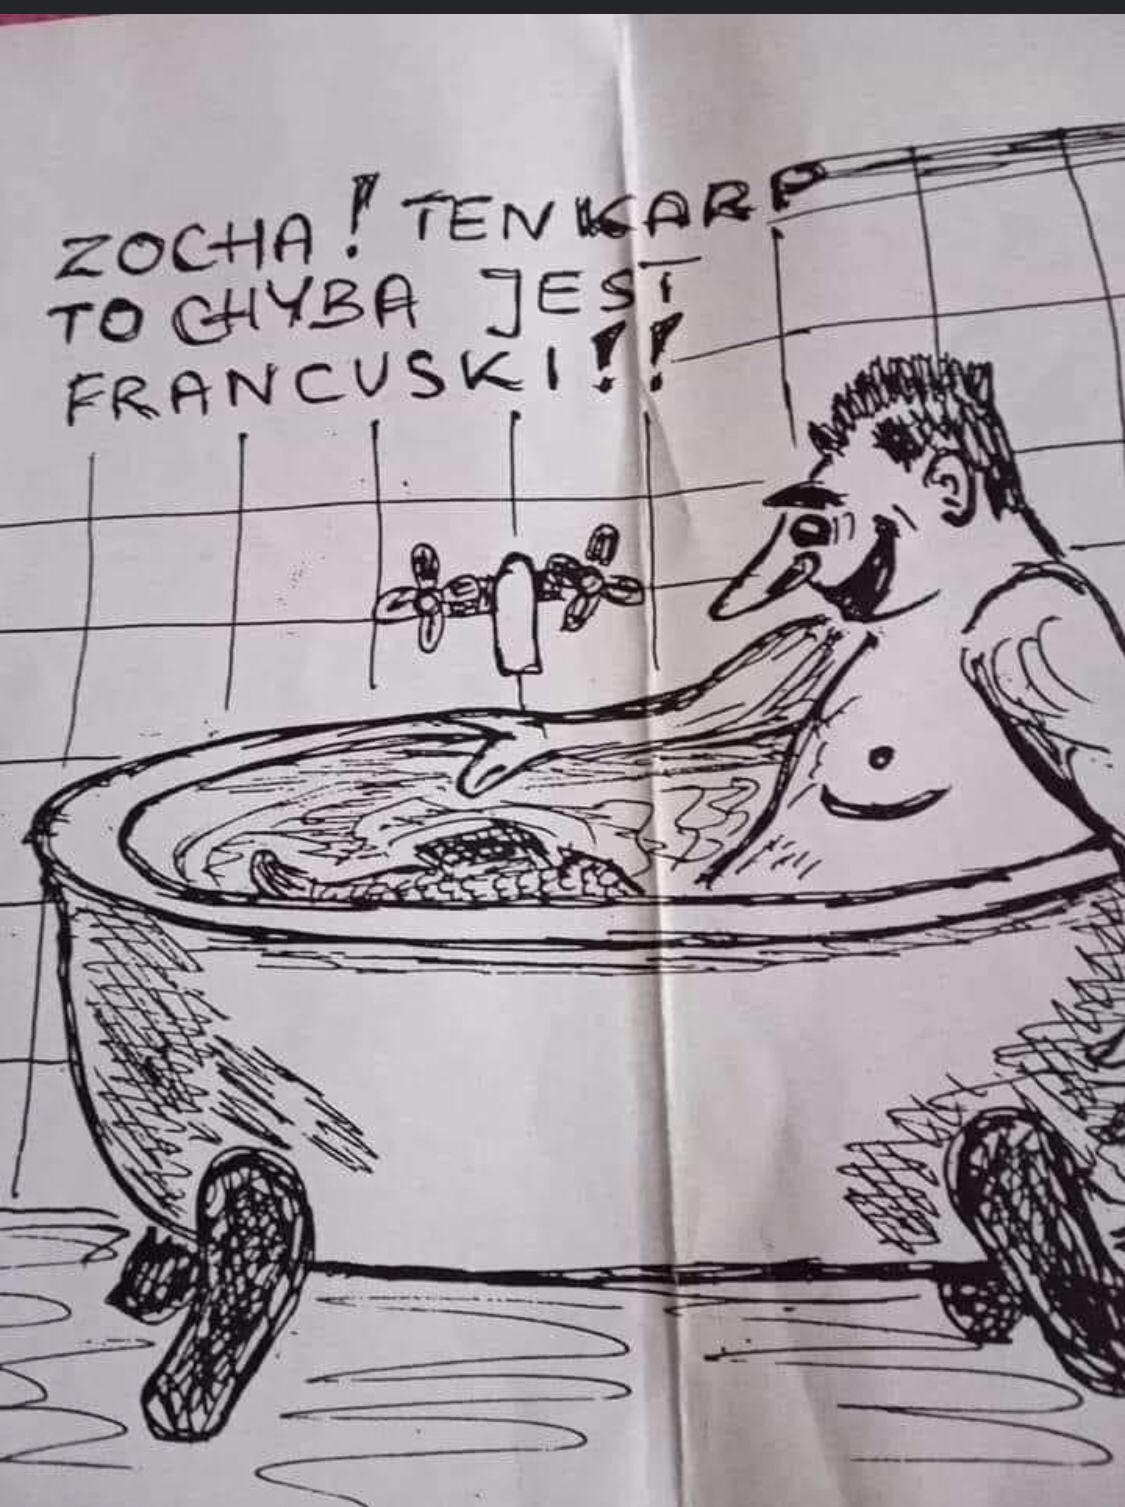 ZOCHA! TEN KARP
TO CHYBA JEST
FRANCUSKI!!